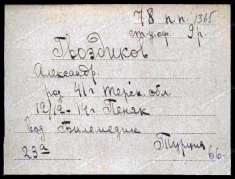 78 п.п. 1365
ст. у.оф. 9 р.
Гвоздиков
Александр.
род 41 г Терск. обл.
12/12-14 г Пеняк
вод
Турция 66
23а